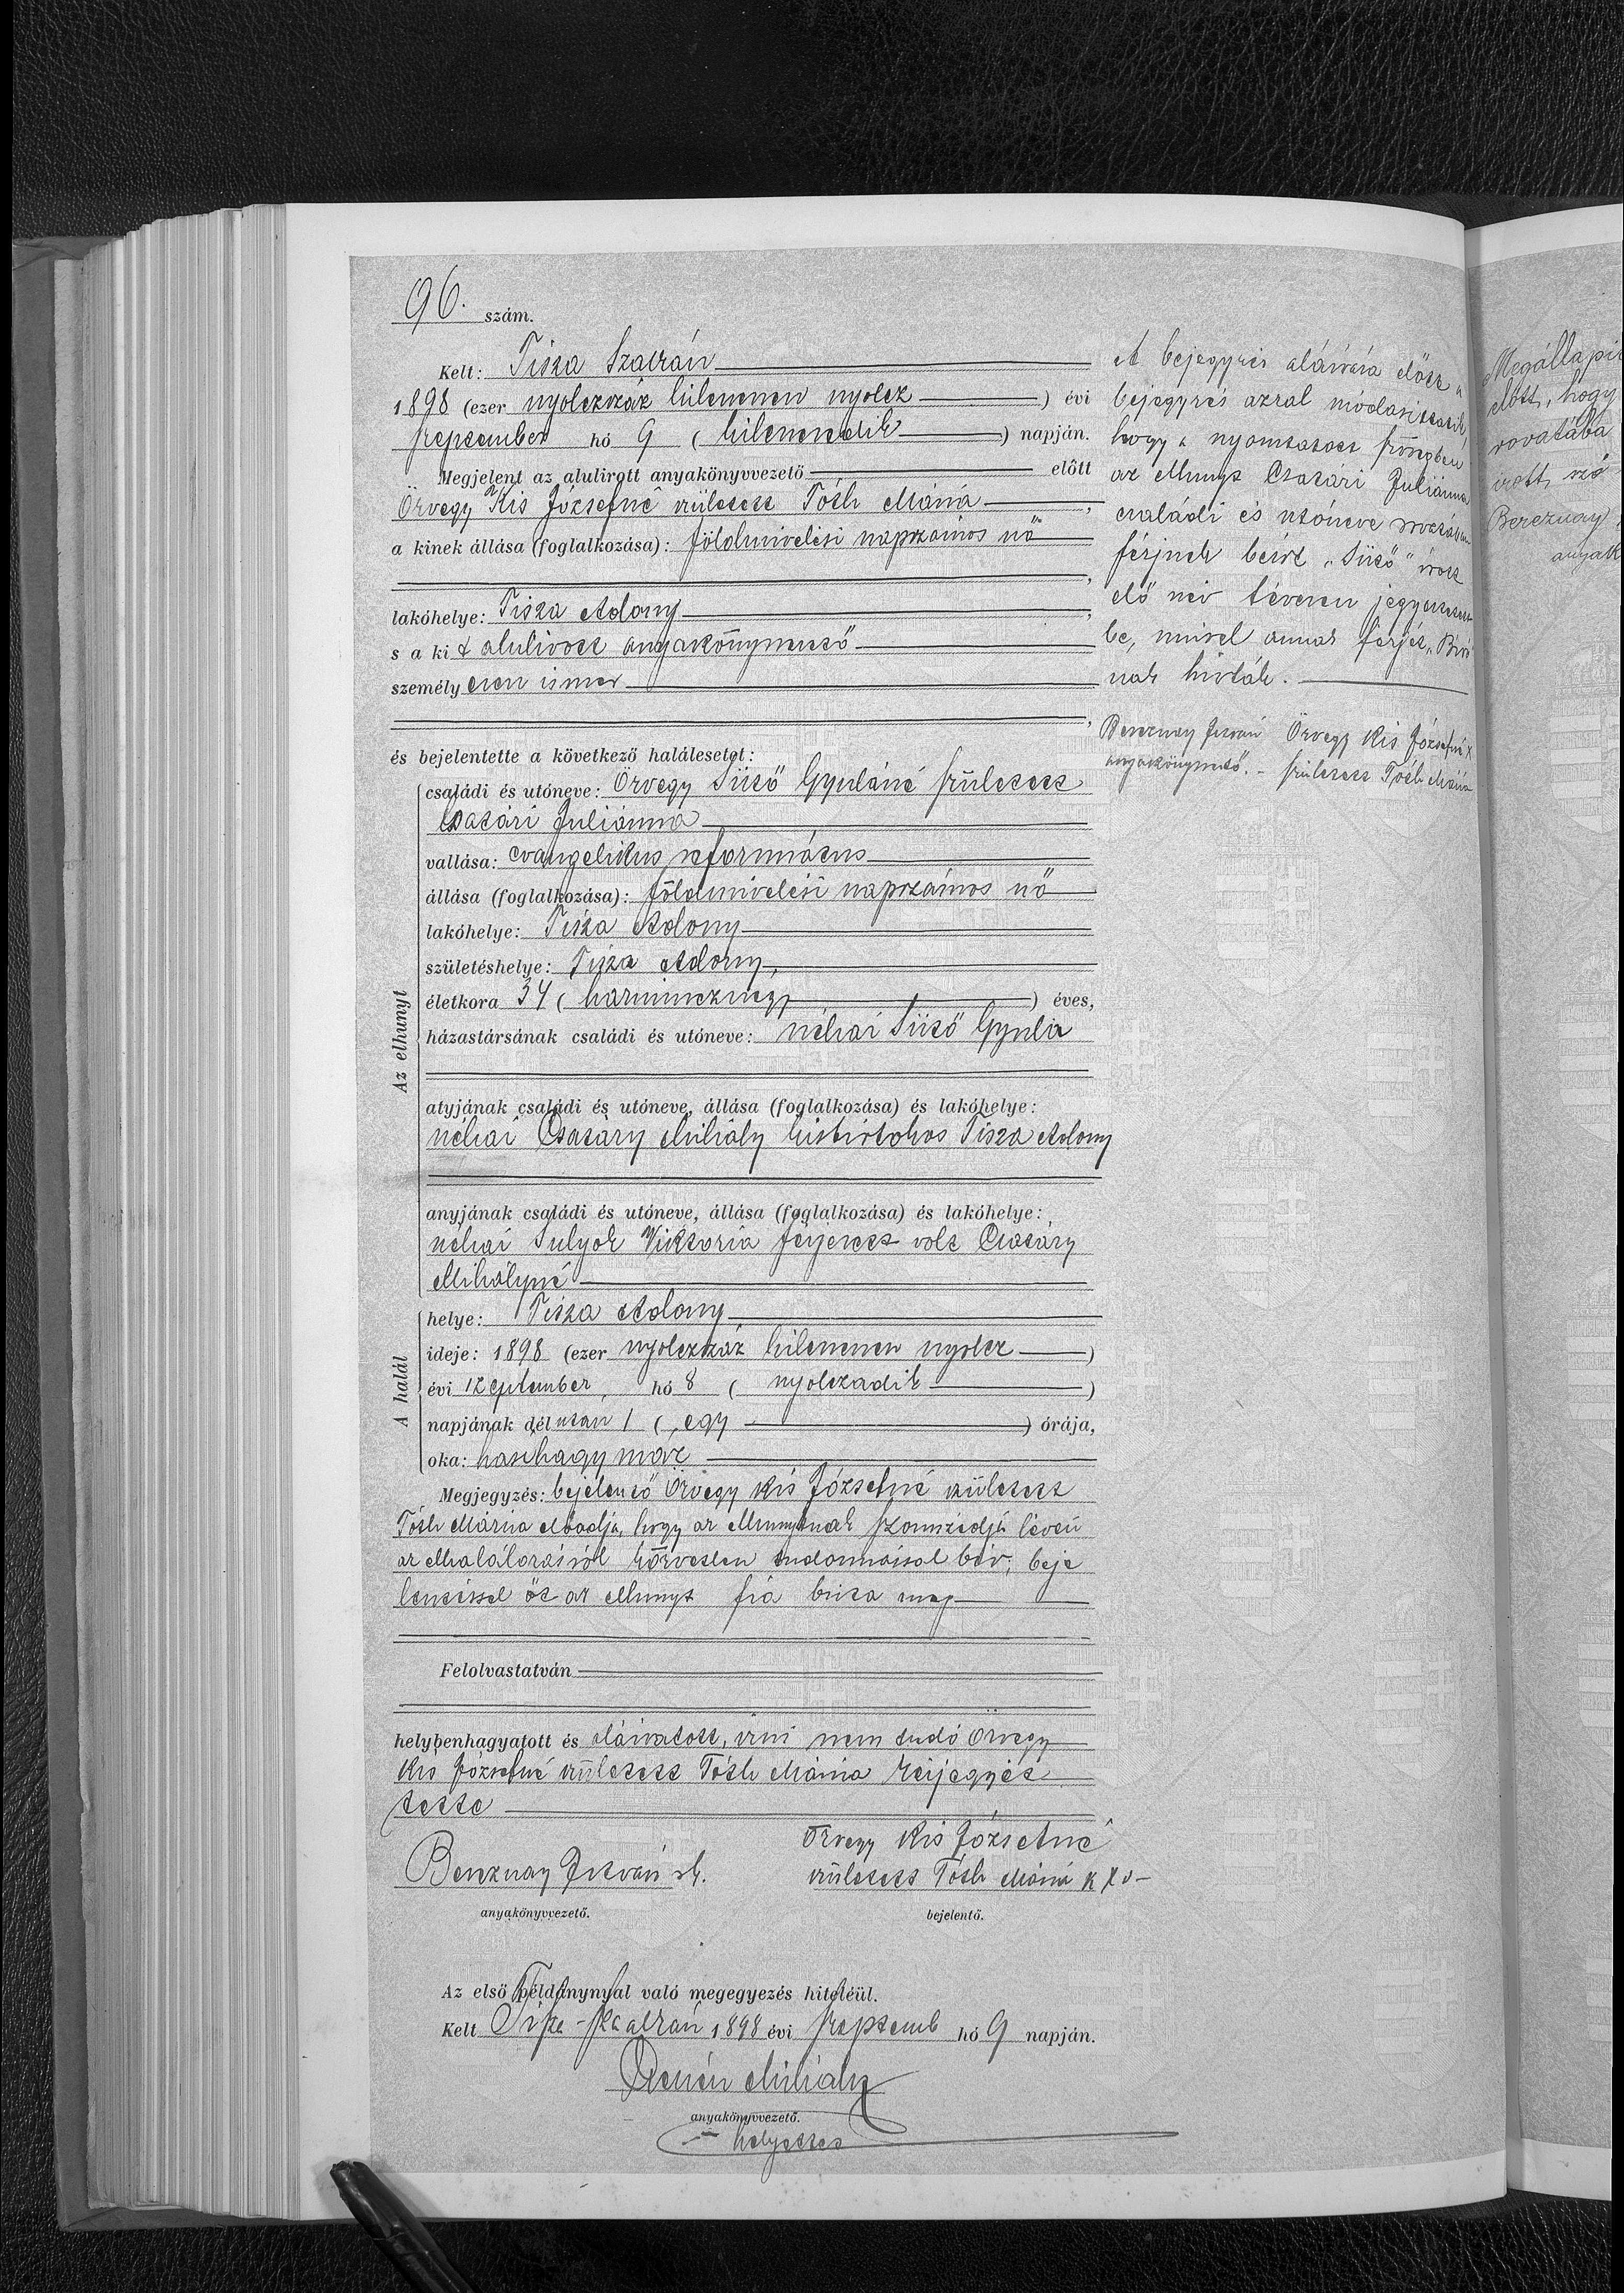 96. szám.
Kelt: Tisza Szalván
1898 (ezer nyolczszáz kilenczven nyolcz) évi
szeptember hó 9 (kilenczedik) napján.
Megjelent az alulirott anyakönyvvezető előtt
Özvegy Kis Józsefné született Tóth Mária,
a kinek állása (foglalkozása): földmivelési napszámos nő
lakóhelye: Tisza Adony,
s a kit alulirott anyakönyvvezető
személyesen ismer,
és bejelentette a következő halálesetet:
Az elhunyt
családi és utóneve: Özvegy Sütő Gyuláné született
Csatári Juliánna
vallása: evangelikus református
állása (foglalkozása): földmivelési napszámos nő
lakóhelye: Tisza Adony
születéshelye: Tisza Adony,
életkora 34 (harmincznégy) éves,
házastársának családi és utóneve: néhai Sütő Gyula
atyjának családi és utóneve, állása (foglalkozása) és lakóhelye:
néhai Csatáry Mihály kisbirtokos Tisza Adony
anyjának családi és utóneve, állása (foglalkozása) és lakóhelye:
néhai Sulyok Viktoria férjezett volt Csatáry
Mihályné
A halál
helye: Tisza Adony
ideje: 1898 (ezer nyolczszáz kilenczven nyolcz)
évi szeptember hó 8 (nyolczadik)
napjának délután 1 (egy) órája,
oka: hashagymáz
Megjegyzés: bejelentő Özvegy Kis Józsefné született
Tóth Mária előadja, hogy az elhunytnak szomszédja lévén
az elhalálozásról közvetlen tudomással bír; beje
lentéssel őt az elhunyt fia bizta meg
Felolvastatván
helybenhagyatott és aláiratott, irni nem tudó Özvegy
Kis Józsefné született Tóth Mária kézjegyét
tette
Bereznay István sk. Özvegy Kis Józsefné
született Tóth Mária k X v
anyakönyvvezető. bejelentő.
Az első példánynyal való megegyezés hiteléül.
Kelt Tisza-Szalván 1898 évi szeptemb hó 9 napján.
Mihály
anyakönyvvezető.
helyettes
A bejegyzés aláirása előtt a
bejegyzés azzal módosittatik,
hogy a nyomtatott szövegben
az elhunyt Csatári Juliánna
családi és utóneve rovatában
férjnek beirt „Sütő" irott
elő név tévesen jegyeztetett
be, mivel annak férjét „Biró"
nak hivták.
Bereznay István Özvegy Kis Józsefné X
anyakönyvvezető. született Tóth Mária
Megállapi
előtt, hogy
rovatába
irott szó
Bereznay
anyak